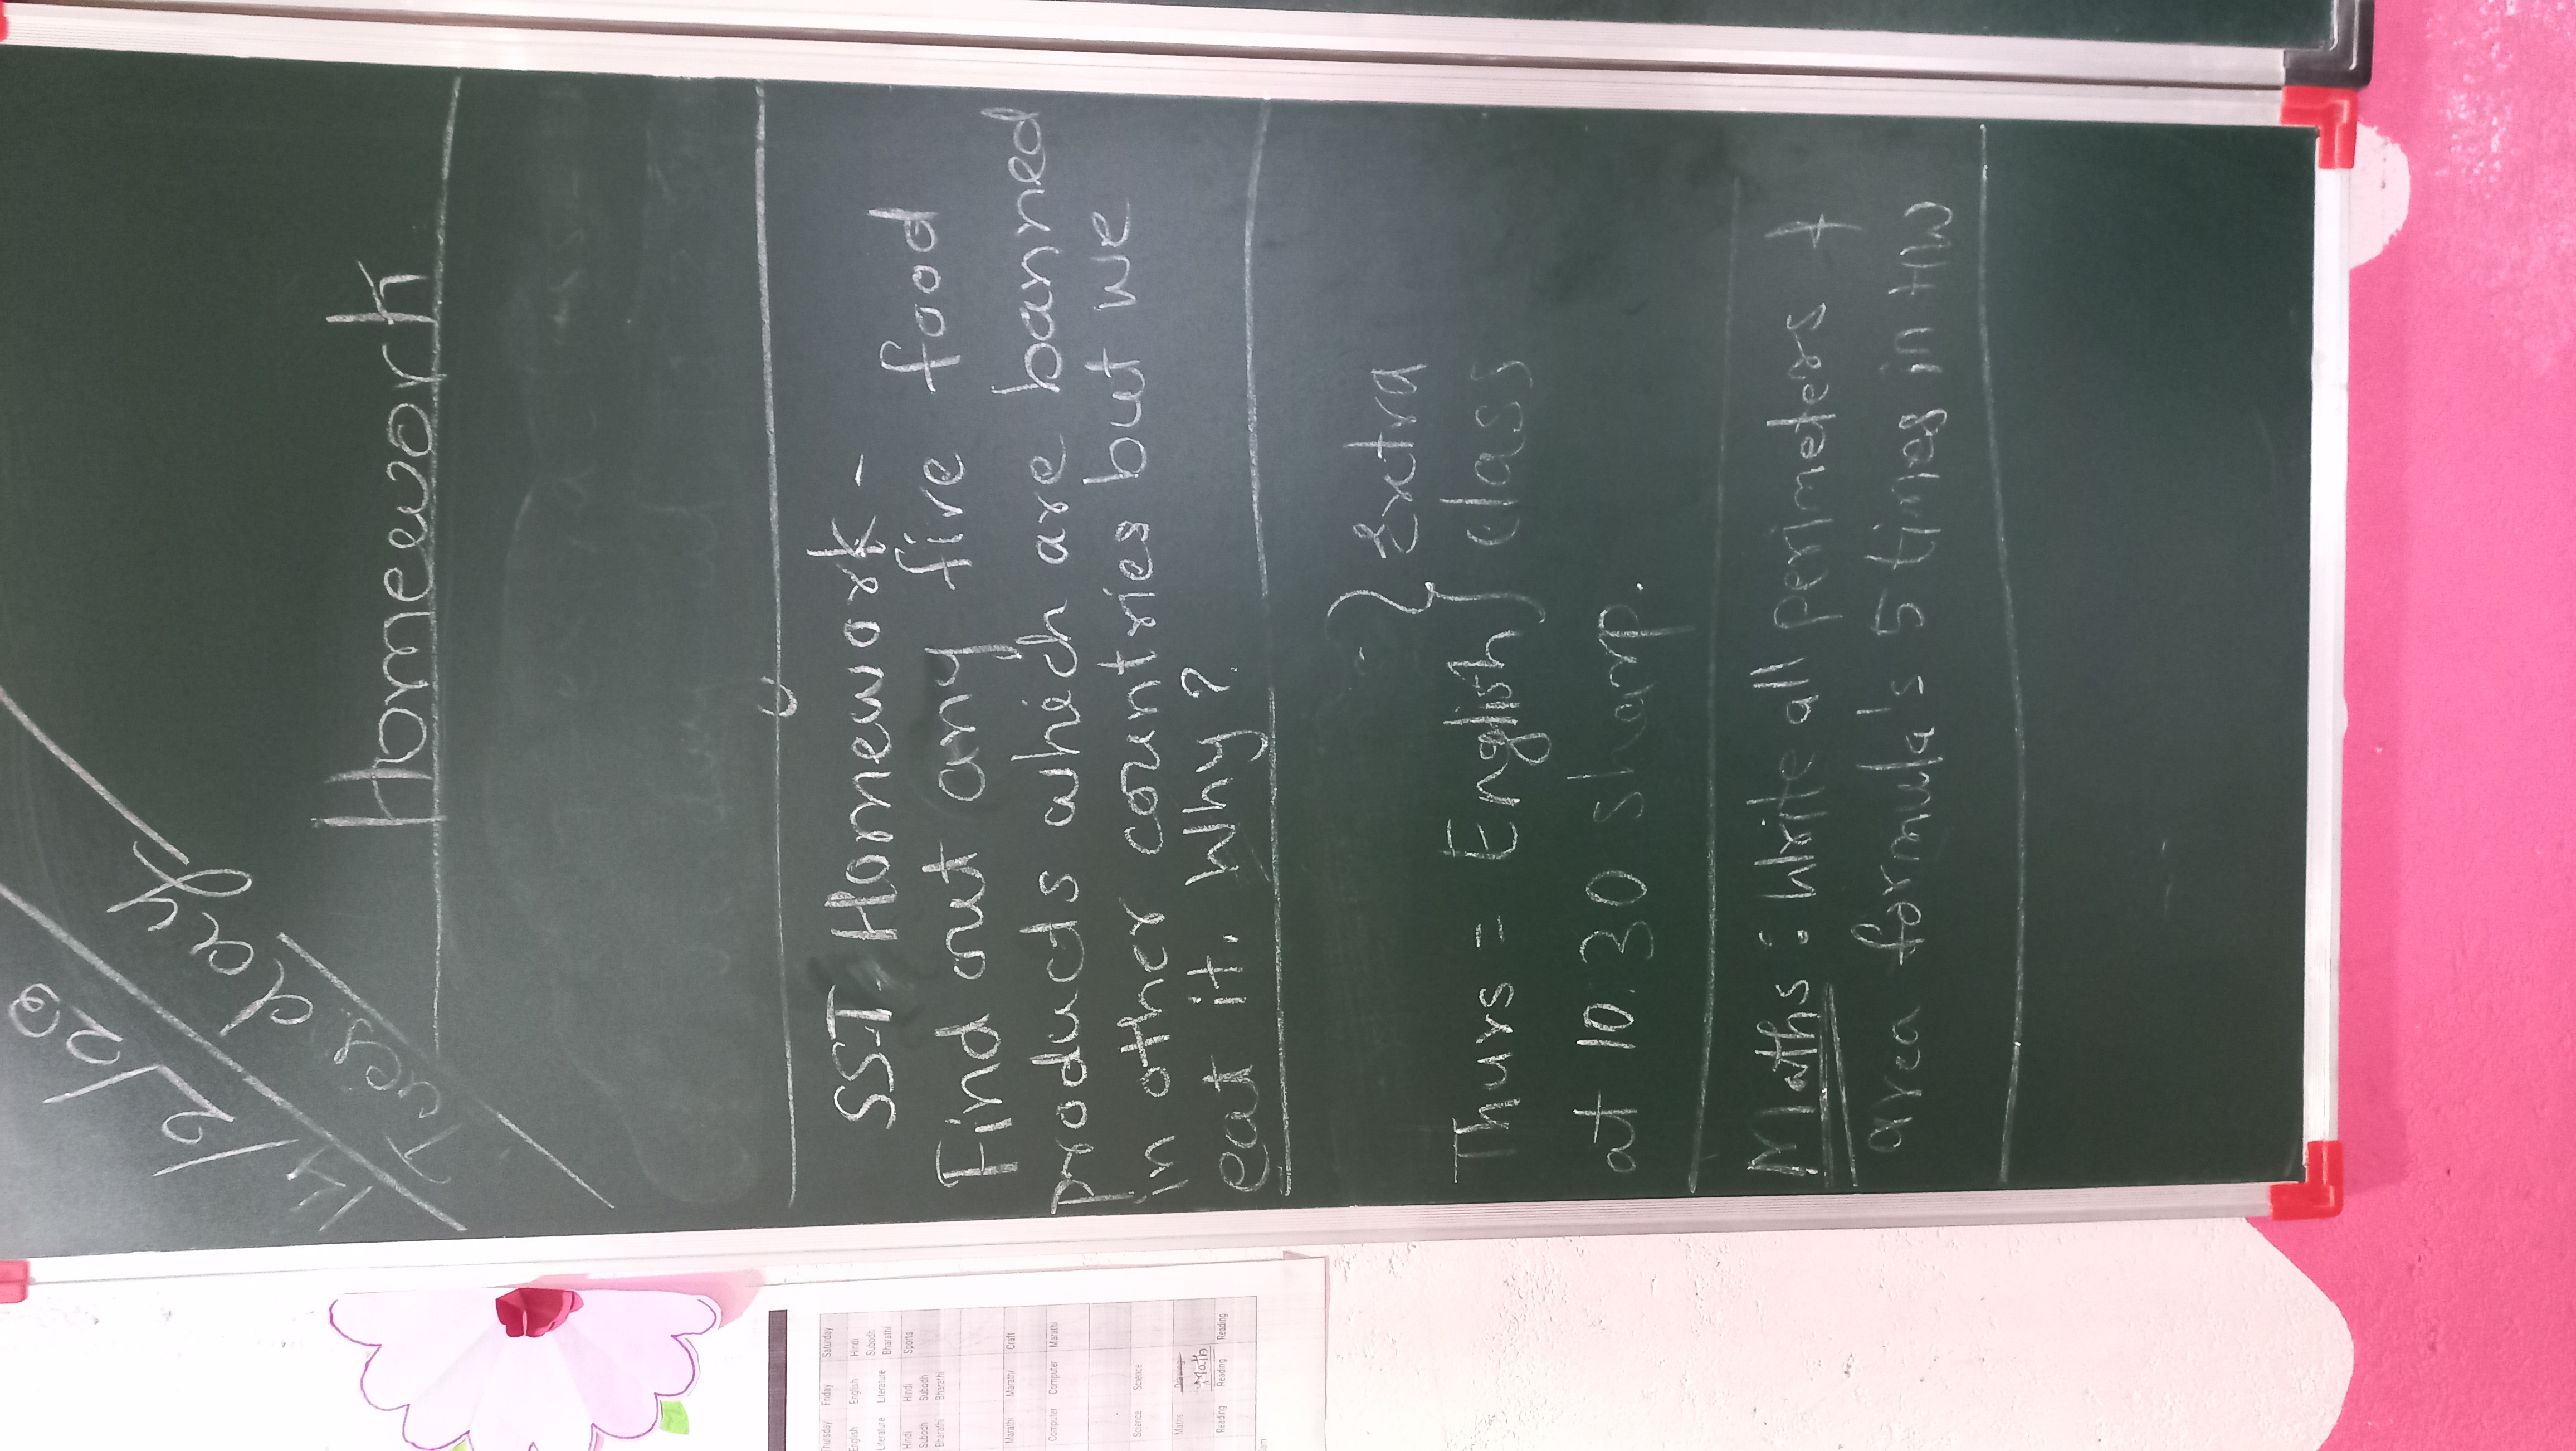 14/12/20
Tuesday
Homework
SST. Homework -
Find out any five food
products which are banned
in other countries but we
eat it. Why?
Thurs = English } extra
class
at 10.30 sharp.
Maths : Write all perimeters +
area formula's 5 times in HW
Thursday Friday Saturday
English English Hindi
Literature Literature Subodh
Bharathi
Hindi Hindi Sports
Subodh Subodh
Bharathi Bharathi
Marathi Marathi Craft
Computer Computer Marathi
Science Science
Maths Math
Reading Reading Reading